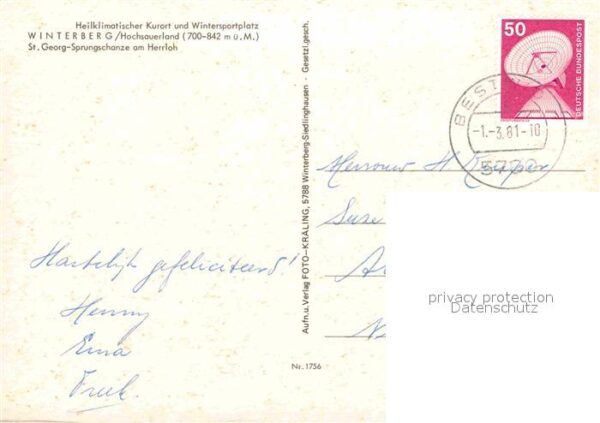 Heilklimatischer Kurort und Wintersportplatz
WINTERBERG/Hochsauerland (700–842 m ü. M.)
St. Georg-Sprungschanze am Herrloh
Hartelijk gefeliciteerd!
Henny
Ema
Freek.
Nr. 1756
Aufn. u. Verlag FOTO–KRALING, 5788 Winterberg-Siedlinghausen · Gesetzl. gesch.
50
DEUTSCHE BUNDESPOST
BEST
-1.-3.81-10
Mevrouw H
privacy protection
Datenschutz